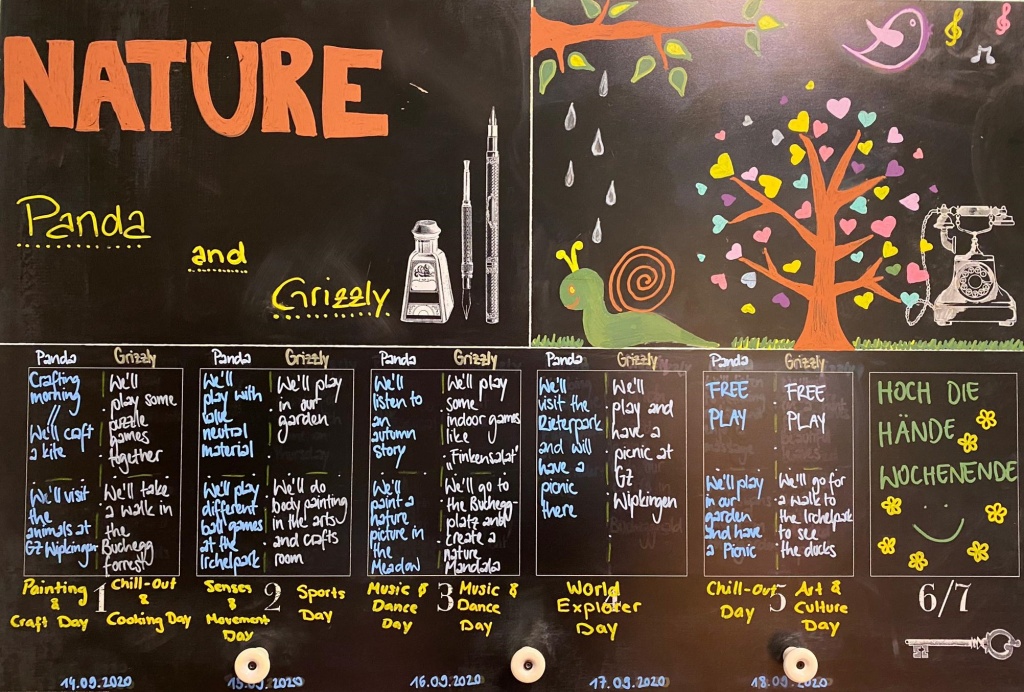 NATURE
Panda
and
Grizzly
Panda
Grizzly
Crafting
morning
We'll craft
a kite
We'll visit
the
animals at
GZ Wipkingen
We'll
play some
puzzle
games
together
We'll take
a walk in
the
Buchegg
forrest
Painting
&
Craft Day
1
Chill-Out
&
Cooking Day
14.09.2020
Panda
Grizzly
We'll
play with
value
neutral
material
We'll play
different
ball games
at the
Irchelpark
We'll play
in our
garden
We'll do
body painting
in the arts
and crafts
room
Senses
&
Movement
Day
2
Sports
Day
15.09.2020
Panda
Grizzly
We'll
listen to
an
autumn
story
We'll
paint a
nature
picture in
the
Meadow
We'll play
some
indoor games
like
"Finkensalat"
We'll go to
the Buchegg-
platz and
create a
nature
Mandala
Music &
Dance
Day
3
Music &
Dance
Day
16.09.2020
Panda
Grizzly
We'll
visit the
Rieterpark
and will
have a
picnic
there
We'll
play and
have a
picnic at
GZ
Wipkingen
World
Explorer
Day
4
17.09.2020
Panda
Grizzly
FREE
PLAY
We'll play
in our
garden
and have
a Picnic
FREE
PLAY
We'll go for
a walk to
the Irchelpark
to see
the ducks
Chill-Out
Day
5
Art &
Culture
Day
18.09.2020
HOCH DIE
HÄNDE
WOCHENENDE
6/7